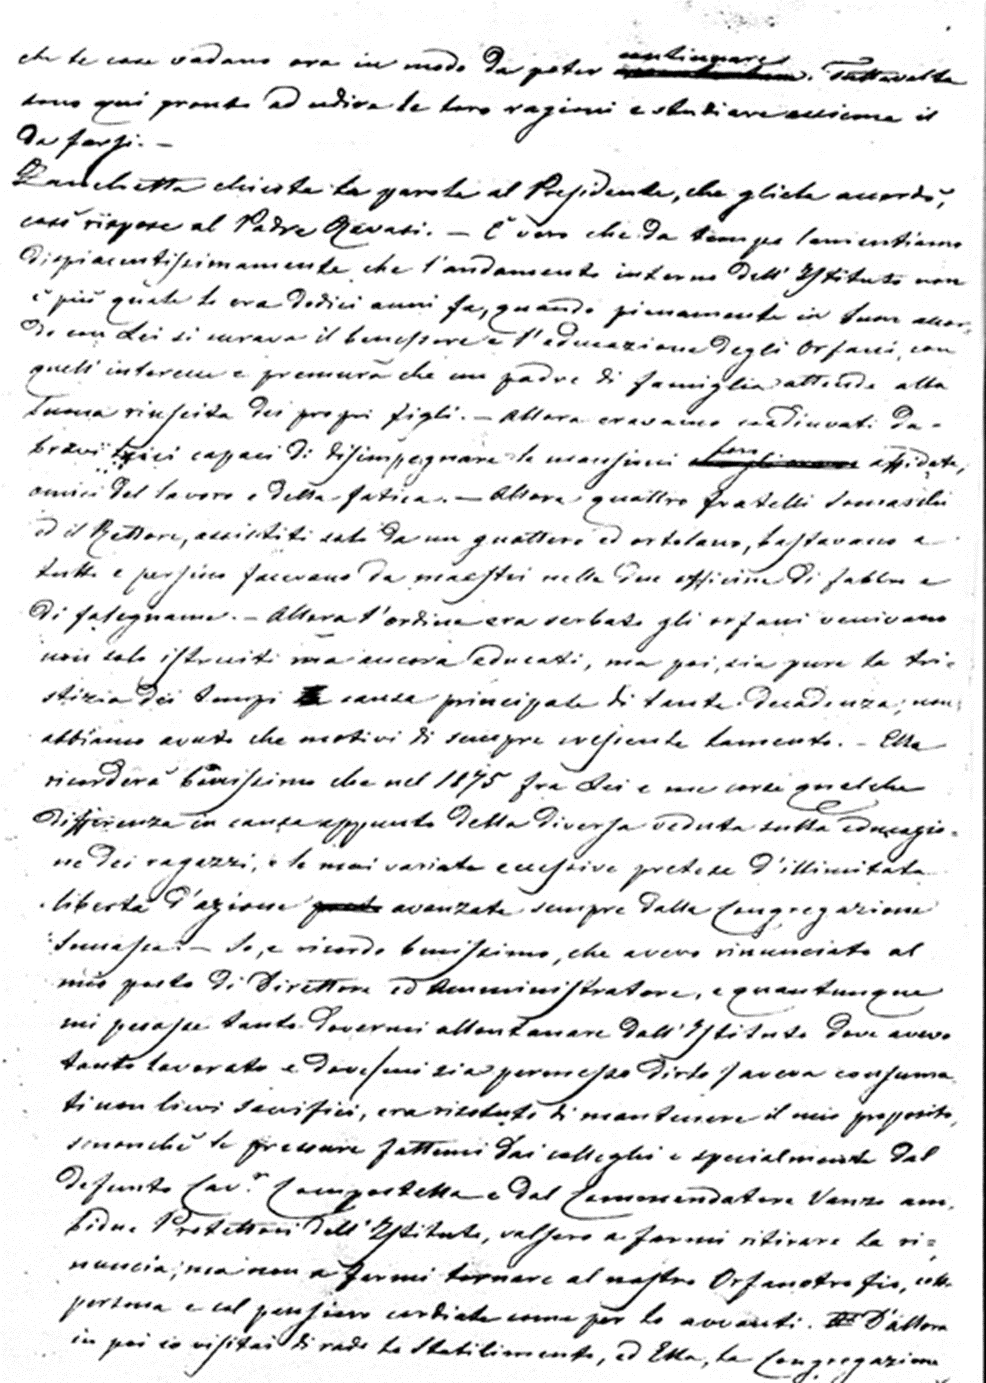 che le cose vadano ora in modo da poter continuare. Tuttavolta
sono qui pronto ad udire le loro ragioni e studiare assieme il
da farsi. —
Zanchetta chiesta la parola al Presidente, che gliela accordò,
così rispose al Padre Ravasi. — È vero che da tempo lamentiamo
dispiacentissimamente che l'andamento interno dell'Istituto non
è più quale lo era dodici anni fa, quando pienamente in buon accor-
do con Lei si curava il benessere e l'educazione degli Orfani, con
quell'interesse e premura che un padre di famiglia attende alla
buona riuscita dei propri figli. — Allora eravamo coadiuvati da
bravi laici capaci di disimpegnare le mansioni loro affidate,
amici del lavoro e della fatica. — Allora quattro fratelli Somaschi
ed il Rettore, assistiti solo da un guattero ed ortolano, bastavano a
tutto e persino facevano da maestri nelle due officine di fabbro e
di falegname. — Allora l'ordine era serbato gli orfani venivano
non solo istruiti ma ancora educati, ma poi, sia pure la tri-
stizia dei tempi causa principale di tanta decadenza, non
abbiamo avuto che motivi di sempre crescente lamento. — Ella
ricorderà benissimo che nel 1875 fra Lei e me corse qualche
differenza in causa appunto della diversa veduta sulla educazio-
ne dei ragazzi, e le mai variate eccessive pretese d'illimitata
libertà d'azione avanzate sempre dalla Congregazione
Somasca. — Io, e ricordo benissimo, che avevo rinunciato al
mio posto di Direttore ed Amministratore, e quantunque
mi pesasse tanto dovermi allontanare dall'Istituto dove avevo
tanto lavorato e dove mi sia permesso dirlo aveva consuma
ti non lievi sacrifici, era risoluto di mantenere il mio proposito,
senonchè le pressure fattemi dai colleghi e specialmente dal
defunto Cav.r Compostella e dal Commendatore Vanzo am-
bidue Protettori dell'Istituto, valsero a farmi ritirare la ri=
nuncia; ma non a farmi tornare al nostro Orfanotrofio, colla
persona e col pensiero cordiale come per lo avanti. D'allora
in poi io visitai di rado lo Stabilimento, ed Ella, la Congregazione